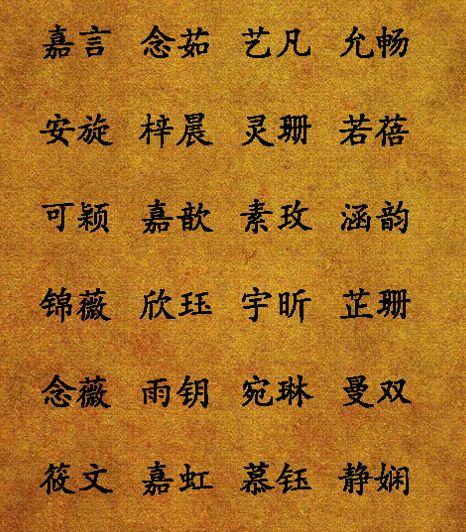 嘉言 念茹 艺凡 允畅
安旋 梓晨 灵珊 若蓓
可颖 嘉歆 素玫 涵韵
锦薇 欣珏 宇昕 芷珊
念薇 雨钥 宛琳 曼双
筱文 嘉虹 慕钰 静娴